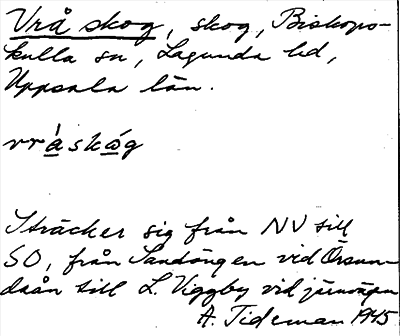 Vrå skog, skog, Biskops-
kulla sn, Lagunda hd,
Uppsala län.
vrǻskóg
Sträcker sig från NV till
SO, från Sandängen vid Örsun-
daån till L. Viggby vid järnvägen
A. Tideman 1945